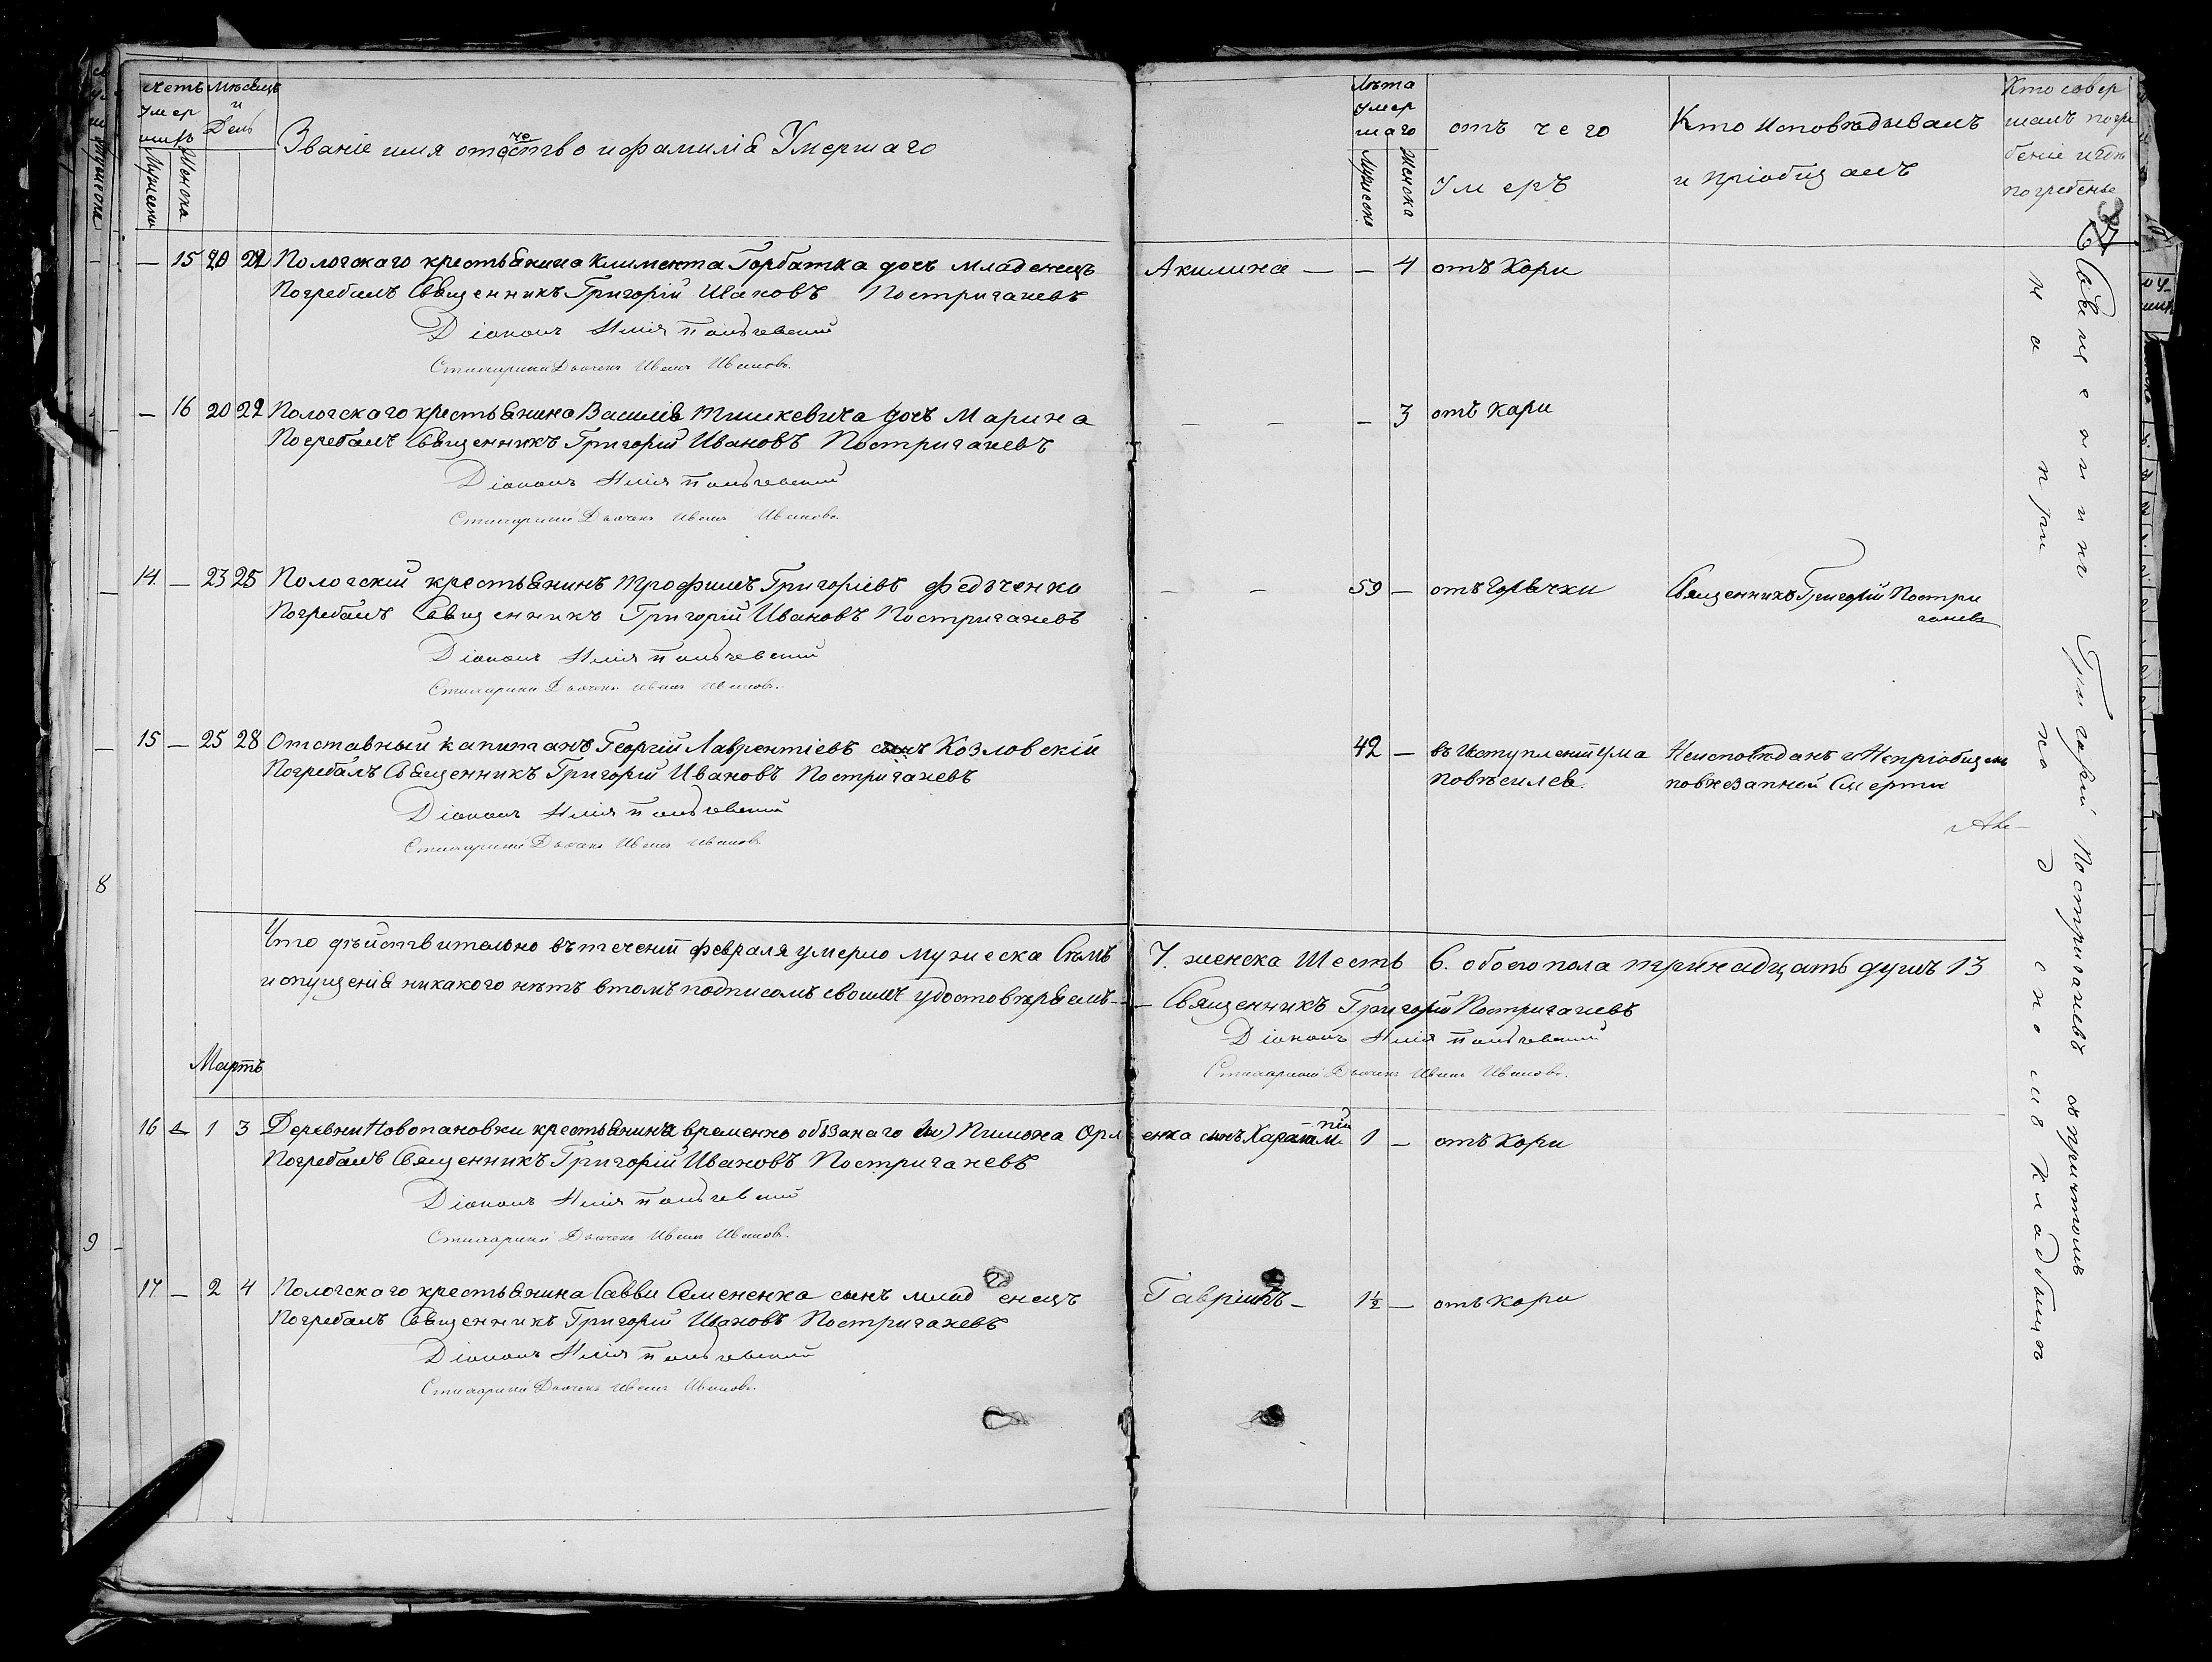 счетъ умершихъ
Мѣсяцъ и День
Званіе имя отечество и фамилія Умершаго
Лѣта Умершаго
отъ чего Умеръ
Кто Исповѣдывалъ и пріобщалъ
Кто совершалъ погребеніе и гдѣ погребены
Мужеска
Женска
Мужеска
Женска
— 15 20 22 Пологскаго крестьянина Климента Горбатка дочь младенецъ Акилина — — 4 отъ Кори
Погребалъ Священникъ Григорій Ивановъ Постригачевъ
Діаконъ Илія
Стихарный Дьячекъ Иванъ Ивановъ.
— 16 20 22 Пологскаго крестьянина Василія Тишкевича дочь Марина — — — 3 отъ кори
Погребалъ Священникъ Григорій Ивановъ Постригачевъ
Діаконъ Илія
Стихарный Дьячекъ Иванъ Ивановъ.
14 — 23 25 Пологскій крестьянинъ Трофимъ Григоріевъ Федченко — — 59 — отъ Горячки Священникъ Григорій Постри
гачевъ
Погребалъ Священникъ Григорій Ивановъ Постригачевъ
Діаконъ Илія
Стихарный Дьячекъ Иванъ Ивановъ.
15 — 25 28 Отставный капитанъ Георгій Лаврентіевъ сынъ Козловскій 42 — въ Иступленій Ума Неисповѣданъ и Непріобщенъ
Погребалъ Священникъ Григорій Ивановъ Постригачевъ повѣсился. повнезапной Смерти
Діаконъ Илія
Стихарный Дьячекъ Иванъ Ивановъ
8
Что дѣйствительно втечений февраля умерло мужеска Семь 7. женска Шесть 6. обоего пола тринадцать душъ 13
и опущенія никакого нѣтъ втомъ подписомъ своимъ удостовѣряемъ — Священникъ Григорій Постригачевъ
Діаконъ Илія
Стихарный Дьячекъ Иванъ Ивановъ.
Мартъ
16 1 3 Деревни Новопановки крестьянина временно обязанаго Пимона Орленка сынъ 1 — отъ Кори
Погребалъ Священникъ Григорій Ивановъ Постригачевъ
Діаконъ Илія
Стихарный Дьячекъ Иванъ Ивановъ.
9
17 — 2 4 Пологскаго крестьянина Савви Семененка сынъ младенецъ Гавріилъ — 1½ — отъ кори
Погребалъ Священникъ Григорій Ивановъ Постригачевъ
Діаконъ Илія
Стихарный Дьячекъ Иванъ Ивановъ.
Священникъ Григорій Постригачевъ съ причтомъ
на приходскомъ кладбищѣ